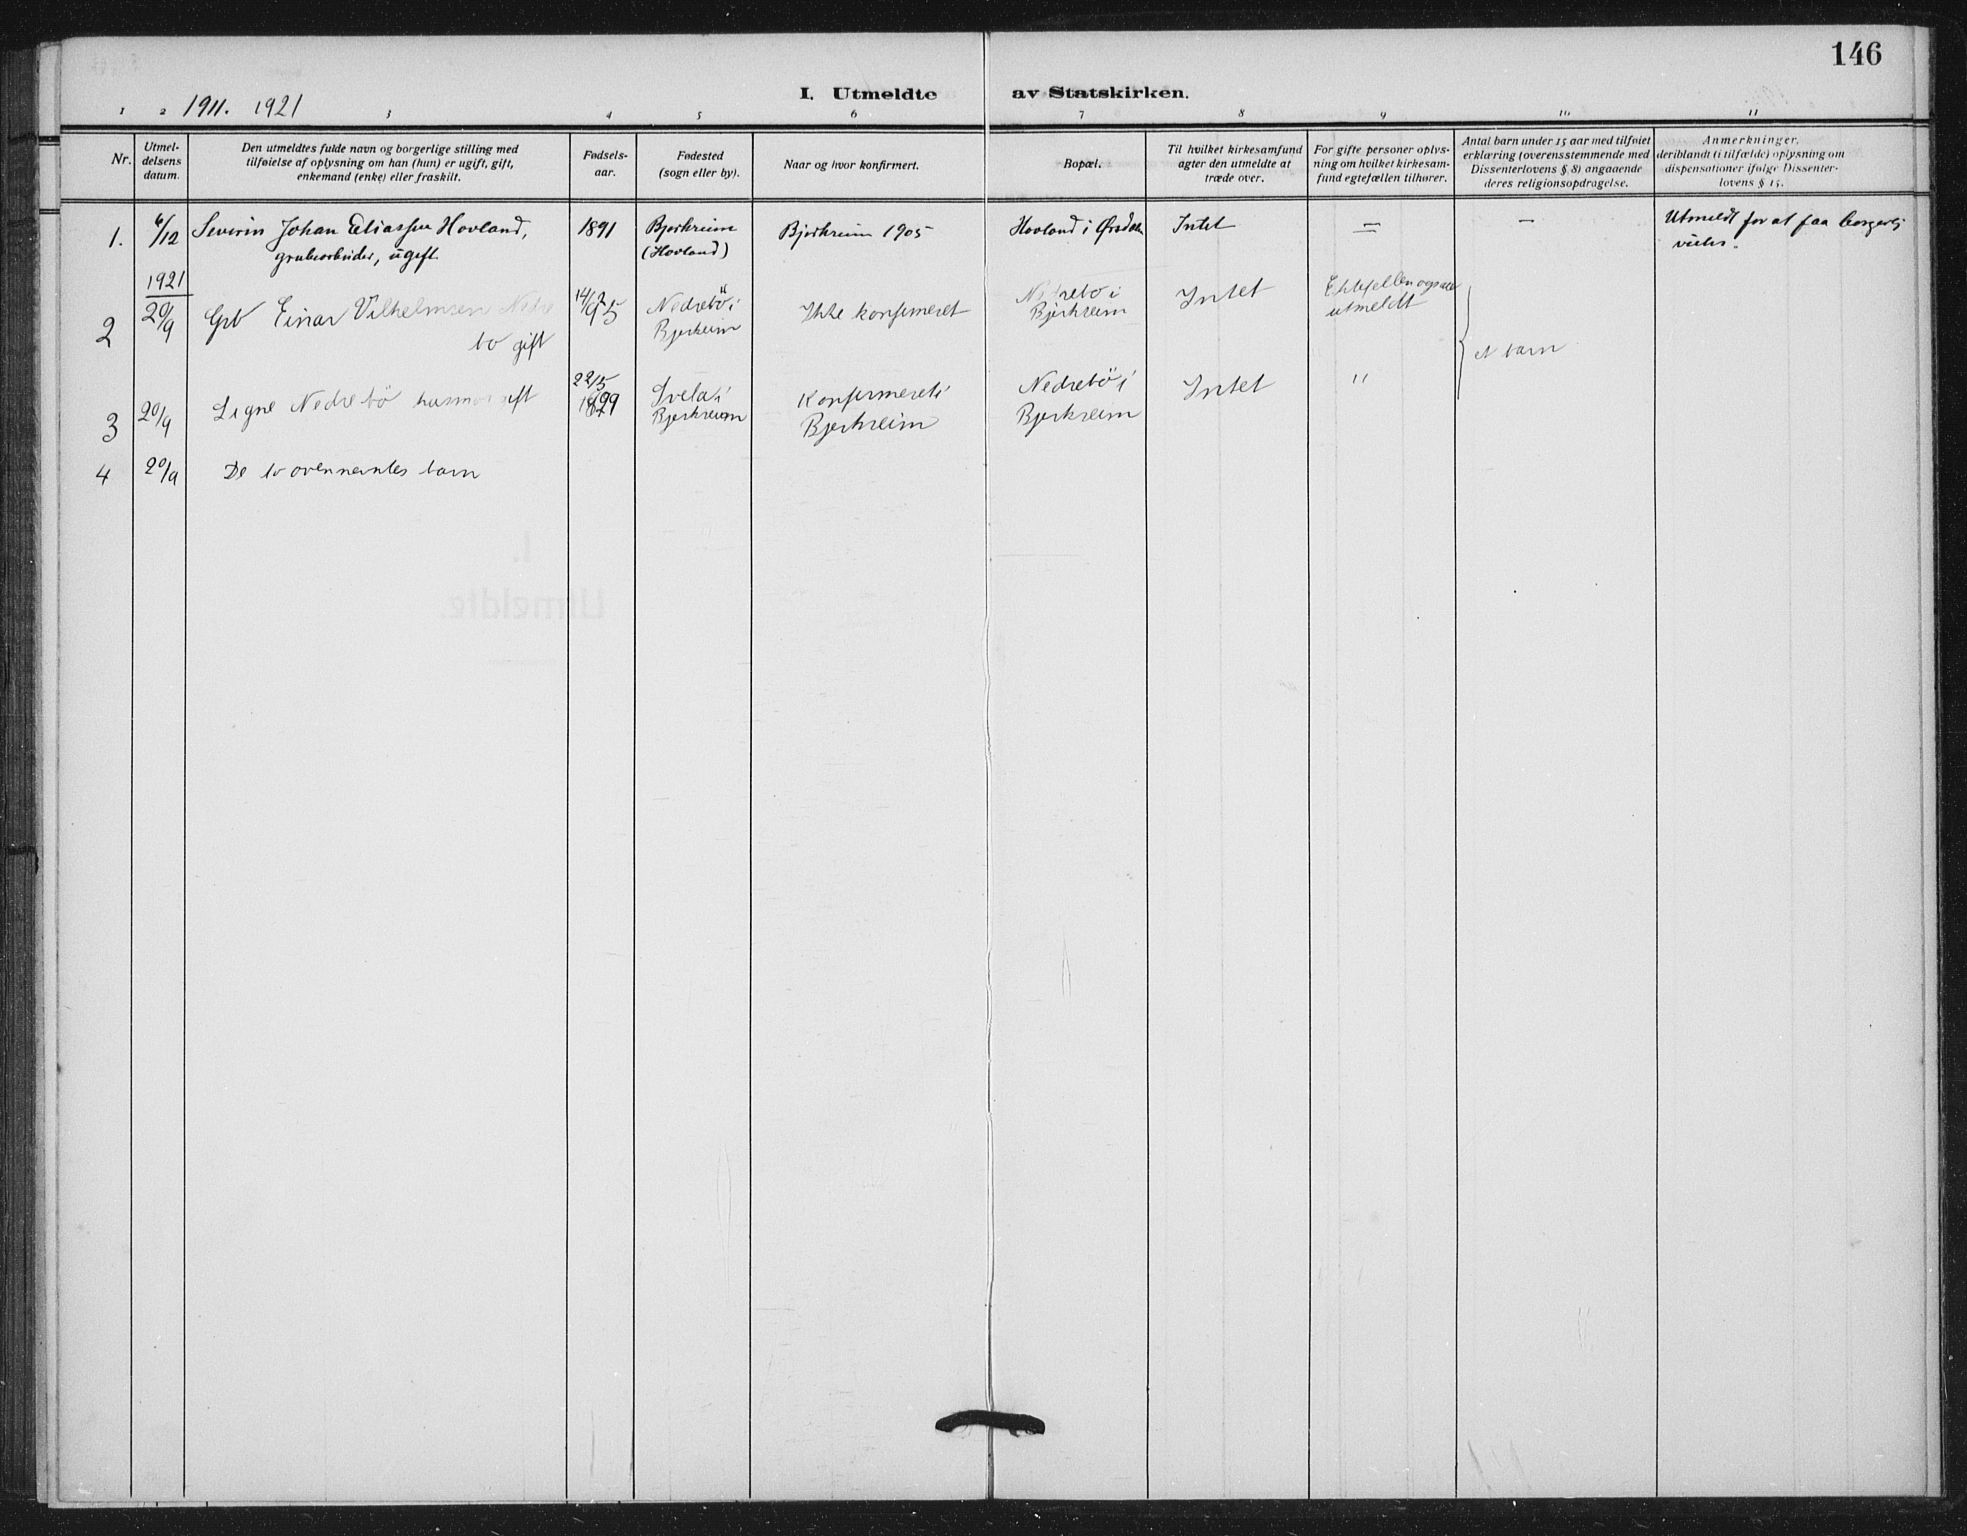 146
1911. 1921
I. Utmeldte av Statskirken.
1 2 3 4 5 6 7 8 9 10 11
Nr.
Utmel-
delsens
datum.
Den utmeldtes fulde navn og borgerlige stilling med
tilføielse af oplysning om han (hun) er ugift, gift,
enkemand (enke) eller fraskilt.
Fødsels-
aar.
Fødested
(sogn eller by).
Naar og hvor konfirmert.
Bopæl.
Til hvilket kirkesamfund
agter den utmeldte at
træde over.
For gifte personer oplys-
ning om hvilket kirkesam-
fund egtefællen tilhører.
Antal barn under 15 aar med tilføiet
erklæring (overensstemmende med
Dissenterlovens § 8) angaaende
deres religionsopdragelse.
Anmerkninger,
deriblandt (i tilfælde) oplysning om
dispensationer ifølge Dissenter-
lovens § 15.
1.
6/12
Severin Johan Eliassen Hovland,
grubearbeider, ugift
1891
Bjerkreim
(Hovland)
Bjerkreim 1905
Hovland i Ørsdalen
Intet
—
—
Utmeldt for at faa borgerlig
vielse.
1921
2
20/9
Grb Einar Vilhelmsen Nedre
bo gift
14/2
95
Nedrebö i
Bjerkreim
Ikke konfirmeret
Nedrebo i
Bjerkreim
Intet
Ektefellen ogsaa
utmeldt
et barn
3
20/9
Signe Nedrebö husmor gift
22/5
1899
Svela i
Bjerkreim
Konfirmeret i
Bjerkreim
Nedrebö i
Bjerkreim
Intet
"
4
20/9
De to ovennevntes barn
I.
Utmeldte.